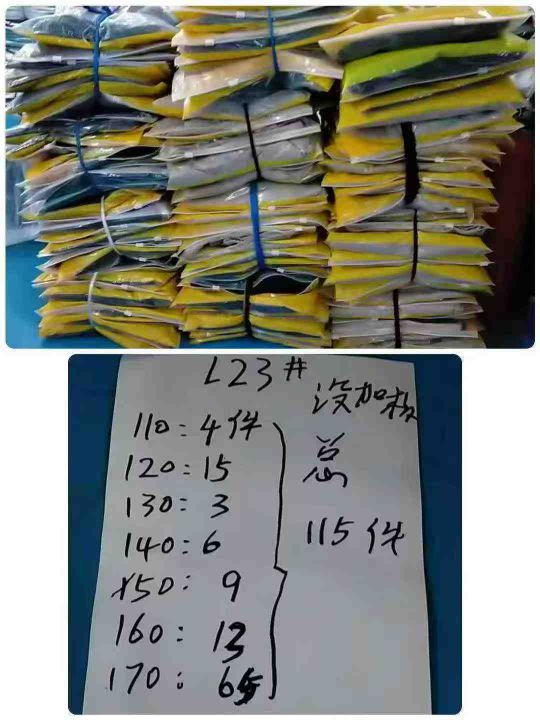 L23#
没加核
110:4件
120:15
130:3
140:6
150:9
160:13
170:65
总
115件